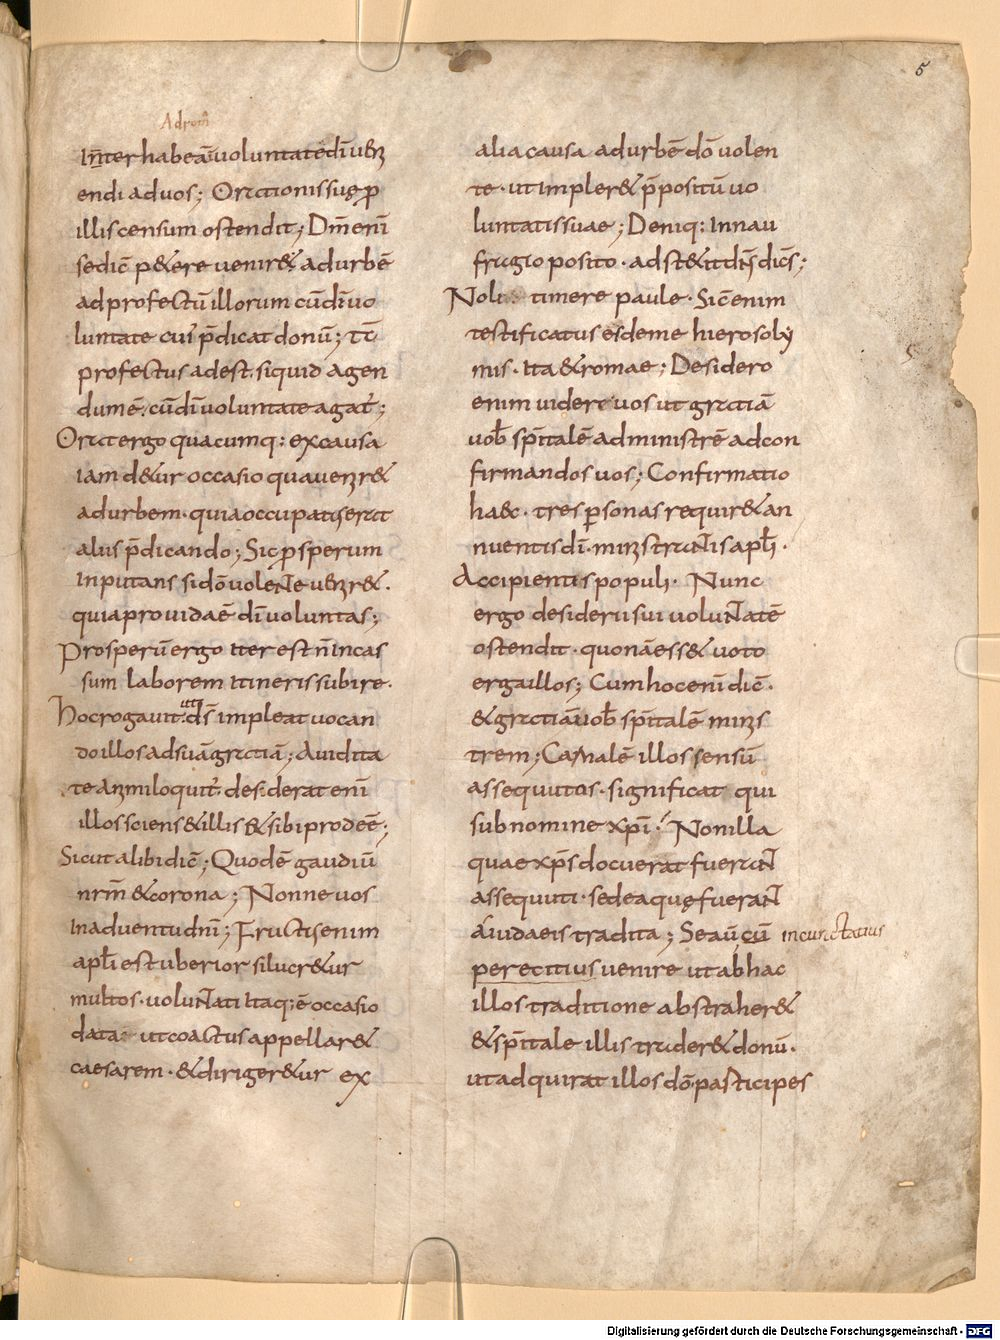 5
Ad rom̄
Iñter habeā uoluntatē dī ueni
endi ad uos; Orationis suę p
illis censum ostendit; Dm̄ enī
se dic̄ p&ere uenir& ad urbē
ad profectū illorum cū dī uo
luntate cuī p̄dicat donū; tc̄
profectus adest. siquid agen
dum ē. cū dī uoluntate agat̄;
Orat ergo quacumq: ex causa
iam d&ur occasio qua uenir&
ad urbem· quia occupatis erat
alus p̄dicando; Sic psperum
inputans si dō uoleNte uenir&·
quia prouida ē dī uoluntas;
Prosperū ergo iter est ñ incas
sum laborem itineris subire·
Hoc rogauit· ut ds̄ impleat uocan
do illos ad suā gratiā; Auidita
te animi loquit̄· desiderat enī
illos sciens & illis & sibi prodeē;
Sicut alibi dic̄; Quod ē gaudiū
nrm̄ & corona; Nonne uos
in aduentu dn̄ī; Fructis enim
apl̄i est uberior si lucr&ur
multos· uoluNtati itaq; ē occasio
data ut coactus appellar&
caesarem· & diriger&ur ex
alia causa ad urbē dō uolen
te· ut impler& p̄positū uo
luntatis suae; Deniq: In nau
frugio posito· adst&it dn̄s dicn̄s;
Noli timere paule· Sic̄ enim
testificatus es de me hierosoly
mis· ita & romae; Desidero
enim uidere uos ut gratiā
uob̄ sp̄italē administrē ad con
firmandos uos; Confirmatio
haec· tres psonas requir& an
nuentis dī· ministraNtis apl̄i·
Accipientis populi· Nunc
ergo desiderii sui uoluNtatē
ostendit· quonā ess& uoto
erga illos; Cum hoc enī dic̄·
& gratiā uob̄ sp̄italē minis
trem; Carnalē illos sensū
assequutos· significat qui
sub nomine xpī· Non illa
quae xp̄s docuerat fueraNt
assequuti· sed ea quę fueraNt
a iudaeis tradita; Se aū cū
incunctatius
perectitius uenire ut ab hac
illos traditione abstraher&
& sp̄itale illis trader& donū·
ut adquirat illos dō· pasticipes
Digitalisierung gefördert durch die Deutsche Forschungsgemeinschaft - DFG